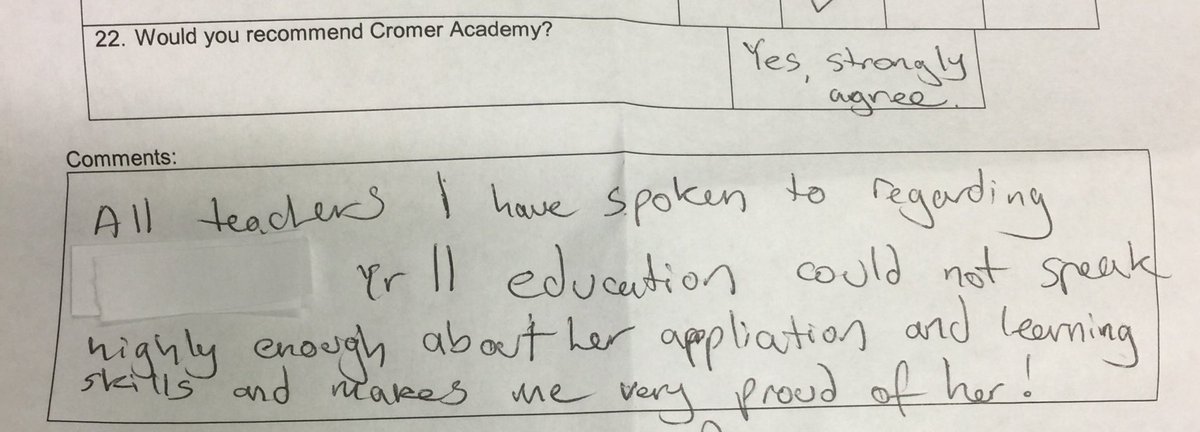 22. Would you recommend Cromer Academy?
Yes, strongly
agree.
Comments:
All teachers I have spoken to regarding
Yr 11 education could not speak
highly enough about her appliation and learning
skills and makes me very proud of her!